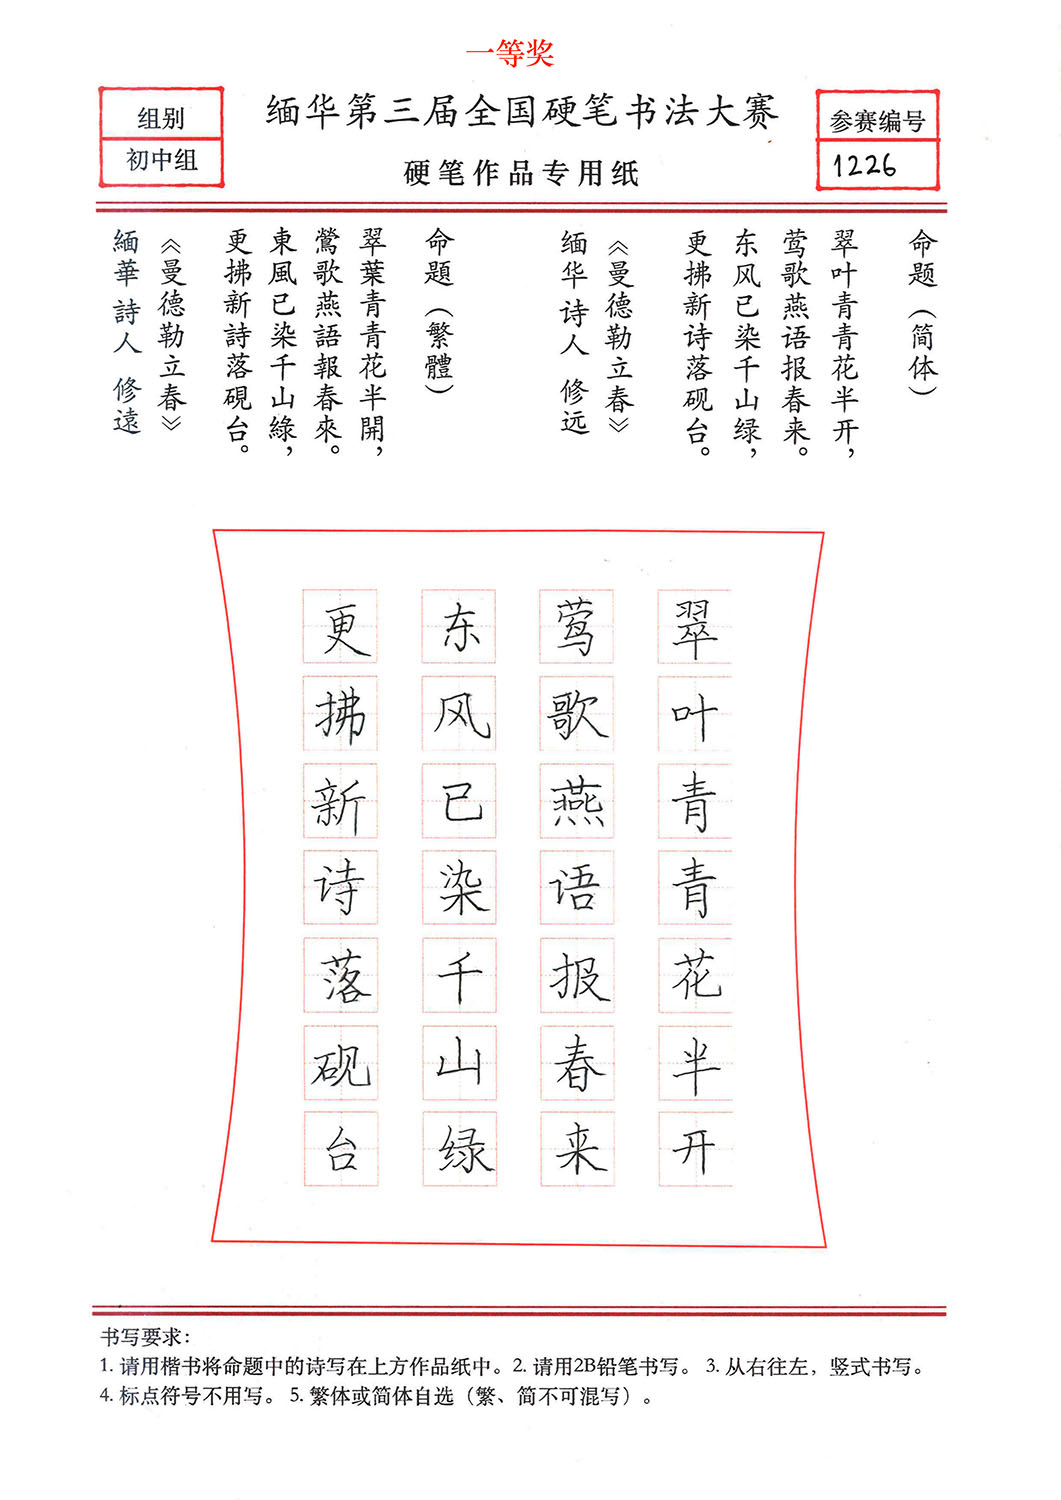 一等奖
组别
初中组
缅华第三届全国硬笔书法大赛
硬笔作品专用纸
参赛编号
1226
命题（简体）
翠叶青青花半开，
莺歌燕语报春来。
东风已染千山绿，
更拂新诗落砚台。
《曼德勒立春》
缅华诗人 修远
命題（繁體）
翠葉青青花半開，
鶯歌燕語報春來。
東風已染千山綠，
更拂新詩落硯台。
《曼德勒立春》
緬華詩人 修遠
翠叶青青花半开
莺歌燕语报春来
东风已染千山绿
更拂新诗落砚台
书写要求：
1. 请用楷书将命题中的诗写在上方作品纸中。2. 请用2B铅笔书写。 3. 从右往左，竖式书写。
4. 标点符号不用写。 5. 繁体或简体自选（繁、简不可混写）。